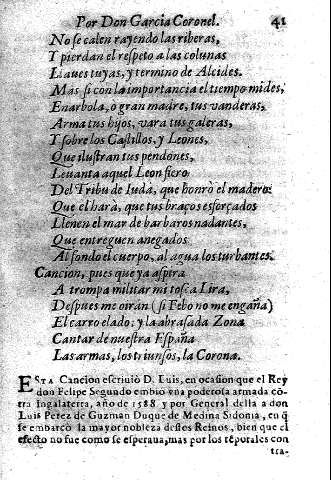 Por Don Garcia Coronel. 41
No se calen rayendo las riberas,
I pierdan el respeto a las colunas
Llaves tuyas, y termino de Alcides.
Mas si con la importancia el tiempo mides,
Enarbola, ò gran madre, tus vanderas,
Arma tus hijos, vara tus galeras,
I sobre los Castillos, y Leones,
Que ilustran tus pendones,
Levanta aquel Leon fiero
Del Tribu de Iudà, que honrò el madero:
Que el harà, que tus braços esforçados
Llenen el mar de barbaros nadantes,
Que entreguen anegados
Al fondo el cuerpo, al agua los turbantes.
Cancion, pues que ya aspira
A trompa militar mi tosca Lira,
Despues me oirán (si Febo no me engaña)
El carro elado; y la abrasada Zona
Cantar de nuestra España
Las armas, los triunfos, la Corona.
ESTA Cancion escriuiò D. Luis, en ocasion que el Rey
don Felipe Segundo embiò vna poderosa armada cõ-
tra Ingalaterra, año de 1588 y por General della a don
Luis Perez de Guzman Duque de Medina Sidonia, en q̃
se embarcò la mayor nobleza destos Reinos, bien que el
efecto no fue como se esperaua, mas por los tẽporales con
tra-